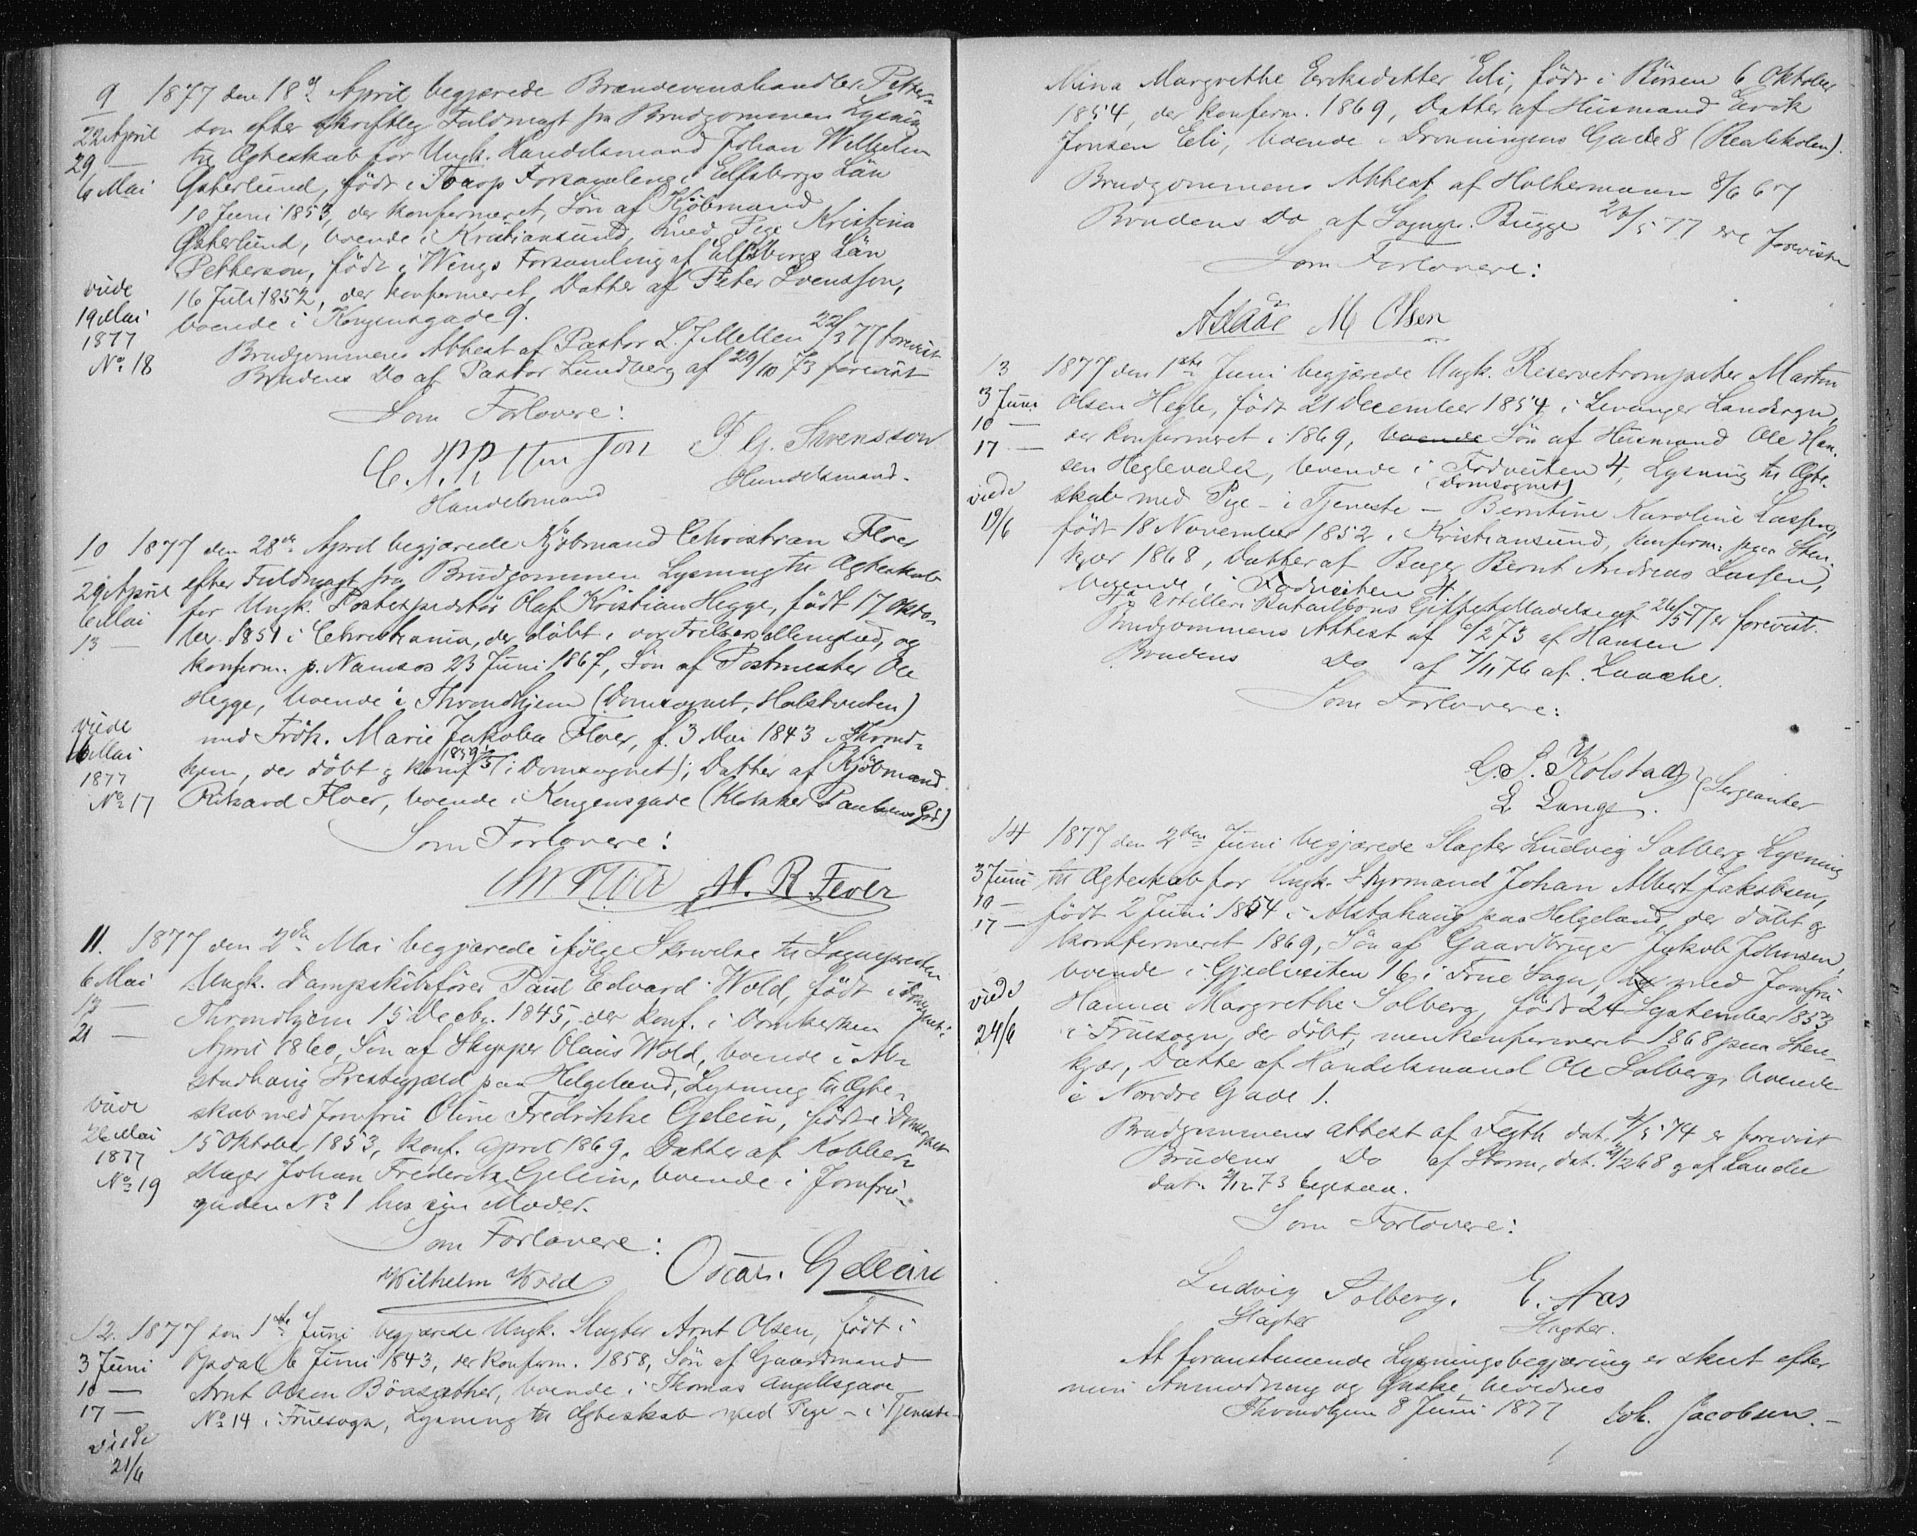 9 1877 den 18de April begjærede Brændevinshandler Petter-
22 April son efter skriftlig Fuldmagt fra Brudgommen Lysning
29 — til Ægteskab for Ungk. Handelsmand Johan Wilhelm
6 Mai Østerlund, født i Toarp Forsamling i Elfsborgs Län
10 Juni 1853, der konfirmeret, Søn af Kjøbmand
Østerlund, boende i Kristiansund, med Pige Kristina
Petterson, født i Wings Forsamling af Elfsborgs Län
viede 16 Juli 1852, der konfirmeret, Datter af Peter Svensson,
19 Mai boende i Kongensgade 9.
1877 Brudgommens Attest af Pastor L. J. Mellen 22/3 77 forevist
No 18 Brudens Do af Pastor Lundberg af 29/10 73 forevist
Som Forlovere:
C. P. Petterson P G. Svensson
Handelsmand Handelsmand.
10 1877 den 28de April begjærede Kjøbmand Christian Floer
29 April efter Fuldmagt fra Brudgommen Lysning til Ægteskab
6 Mai for Ungk. Postexpeditør Olaf Kristian Hegge, født 17 Okto-
13 — ber 1851 i Christiania, der døbt i vor Frelsers Menighed, og
konfirm. p. Namsos 23 Juni 1867, Søn af Postmester Ole
Hegge, boende i Throndhjem (Domsognet, Holstveiten)
viede med Frøk. Marie Jakobia Floer, f. 3 Mai 1843 i Thrond-
16 Mai hjem, der døbt og konf. 1859 (i Domsognet); Datter af Kjøbmand
1877
No 17 Rikard Floer, boende i Kongensgade (Klokker Paulsens Gd)
Som Forlovere:
Chr Floer H. R. Floer
11. 1877 den 2den Mai begjærede ifølge Skrivelse til Sognepresten
6 Mai Ungk. Dampskibsfører Paul Edvard Wold, født i Domsognet i
13 — Throndhjem 15 Decbr. 1845, der konf. i Domkirken
21 — April 1860, Søn af Skipper Olaus Wold, boende i Al-
stadhaug Prestegjæld paa Helgeland, Lysning til Ægte-
viede skab med Jomfru Oline Fredrikke Gelein, født i Domsognet
26 Mai 15 Oktober 1853, konf. April 1869, Datter af Kobber-
1877 slager Johan Frederik Gelein, boende i Jomfru-
No 19 gaden No 1 hos sin Moder.
Som Forlovere:
Wilhelm Wold Oscar Gellein
12. 1877 den 1ste Juni begjærede Ungk. Slagter Arnt Olsen, født i
3 Juni Opdal 6 Juni 1843, der konfirm. 1858, Søn af Gaardmand
10 — Arnt Olsen Böasæther, boende i Thomas Angellsgade
17 — No 14 i Fruesogn, Lysning til Ægteskab med Pige — i Tjeneste —
viede
21/6
Mina Margrethe Eriksdatter Eli, født i Børsen 6 Oktober
1854, der konfirm. 1869, Datter af Husmand Erik
Jonsen Eli, boende i Dronningens Gade 8 (Realskolen).
Brudgommens Attest af Holtermann 8/6 67
Brudens Do af Sognepr. Bugge 26/5 77 ere foreviste
Som Forlovere:
A Aae M Olsen
13 1877 den 1ste Juni begjærede Ungk. Reservetrompeter Martin
3 Juni Olsen Hegle, født 21 December 1854 i Levanger Landsogn,
10 — der konfirmeret i 1869, boende Søn af Husmand Ole Han-
17 — sen Heglevald, boende i Fodveiten 4, Lysning til Ægte-
(Domsognet)
viede skab med Pige — i Tjeneste — Berntine Karoline Lassen,
19/6 født 18 November 1852 i Kristiansund, konfirm. paa Sten-
kjær 1868, Datter af Bager Bernt Andreas Lassen,
boende i Fodveiten 4.
Artilleri Bataillons Giftetilladelse af 26/5 77 er forevist.
Brudgommens Attest af 6/2 73 af Hansen
Brudens Do af 7/11 76 af Laache.
Som Forlovere:
Kolstad } Sergeanter
L Lange.
14 1877 den 2den Juni begjærede Slagter Ludvig Solberg Lysning
3 Juni til Ægteskab for Ungk. Styrmand Johan Albert Jakobsen,
10 — født 2 Juni 1854 i Alstahaug paa Helgeland, der døbt og
17 — konfirmeret 1869, Søn af Gaardbruger Jakob Johnsen,
boende i Gjedveiten 16 i Frue Sogn, med Jomfru
viede Hanna Margrethe Solberg, født 24 September 1853
24/6 i Fruesogn, der døbt, men konfirmeret 1868 paa Sten-
kjær, Datter af Handelsmand Ole Solberg, boende
i Nordre Gade 1.
Brudgommens Attest af Fegth dat. 4/5 74 er forevist
Brudens Do af Storm, dat. 2/12 68 og af Landee
dat. 2/12 73 ligesaa.
Som Forlovere:
Ludvig Solberg. E. Aas
Slagter Slagter.
At foranstaaende Lysningsbegjæring er skeet efter
min Anmodning og Ønske, bevidnes
Throndhjem 8 Juni 1877 Joh. Jacobsen. —